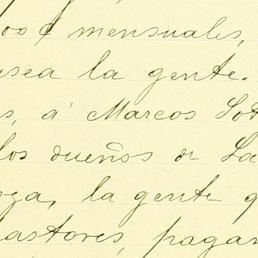 mensuales,
sea la gente.
s, á Marcos Sot
los dueños de La
la gente q
astores, pagar